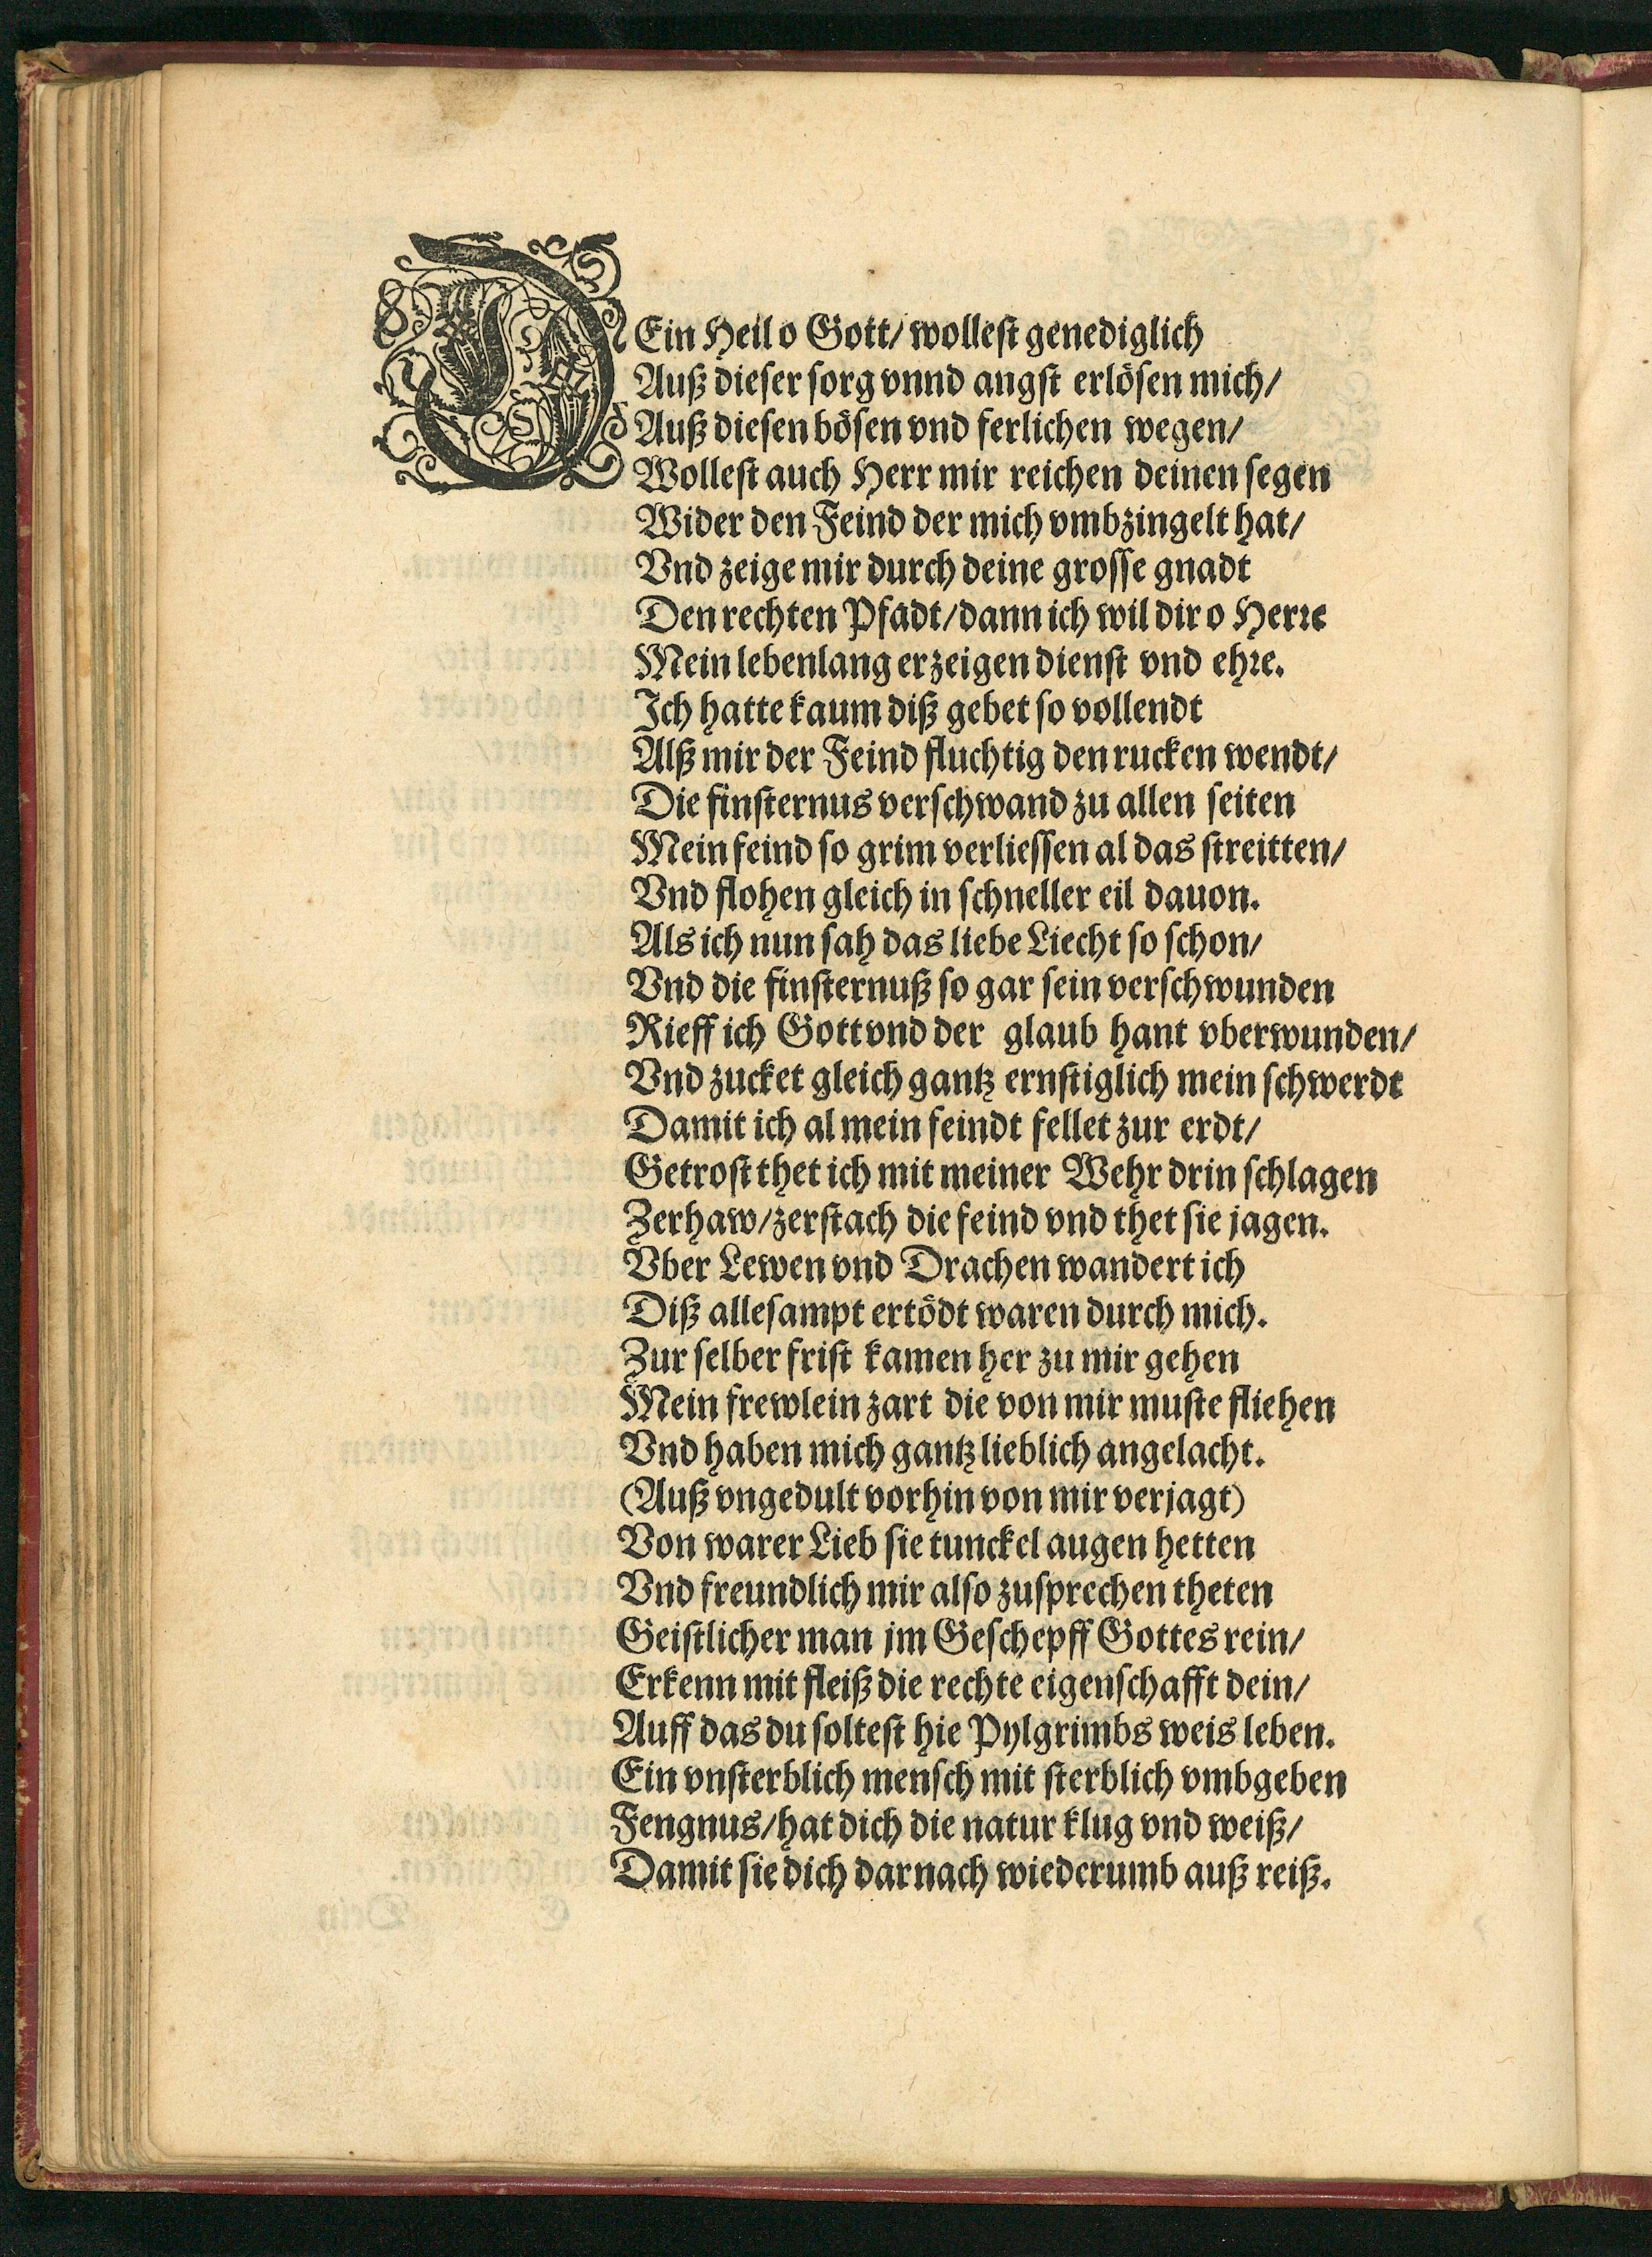 DEin Heil o Gott/ wollest genediglich
Auß dieser sorg vnnd angst erlösen mich/
Auß diesen bösen vnd ferlichen wegen/
Wollest auch Herr mir reichen deinen segen
Wider den Feind der mich vmbzingelt hat/
Vnd zeige mir durch deine grosse gnadt
Den rechten Pfadt/ dann ich wil dir o Herre
Mein lebenlang erzeigen dienst vnd ehre.
Ich hatte kaum diß gebet so vollendt
Alß mir der Feind fluchtig den rucken wendt/
Die finsternus verschwand zu allen seiten
Mein feind so grim verliessen al das streitten/
Vnd flohen gleich in schneller eil dauon.
Als ich nun sah das liebe Liecht so schon/
Vnd die finsternuß so gar sein verschwunden
Rieff ich Gott vnd der glaub hant vberwunden/
Vnd zucket gleich gantz ernstiglich mein schwerdt
Damit ich al mein feindt fellet zur erdt/
Getrost thet ich mit meiner Wehr drin schlagen
Zerhaw/ zerstach die feind vnd thet sie jagen.
Vber Lewen vnd Drachen wandert ich
Diß allesampt ertödt waren durch mich.
Zur selber frist kamen her zu mir gehen
Mein frewlein zart die von mir muste fliehen
Vnd haben mich gantz lieblich angelacht.
(Auß vngedult vorhin von mir verjagt)
Von warer Lieb sie tunckel augen hetten
Vnd freundlich mir also zusprechen theten
Geistlicher man jm Geschepff Gottes rein/
Erkenn mit fleiß die rechte eigenschafft dein/
Auff das du soltest hie Pylgrimbs weis leben.
Ein vnsterblich mensch mit sterblich vmbgeben
Fengnus/ hat dich die natur klug vnd weiß/
Damit sie dich darnach wiederumb auß reiß.